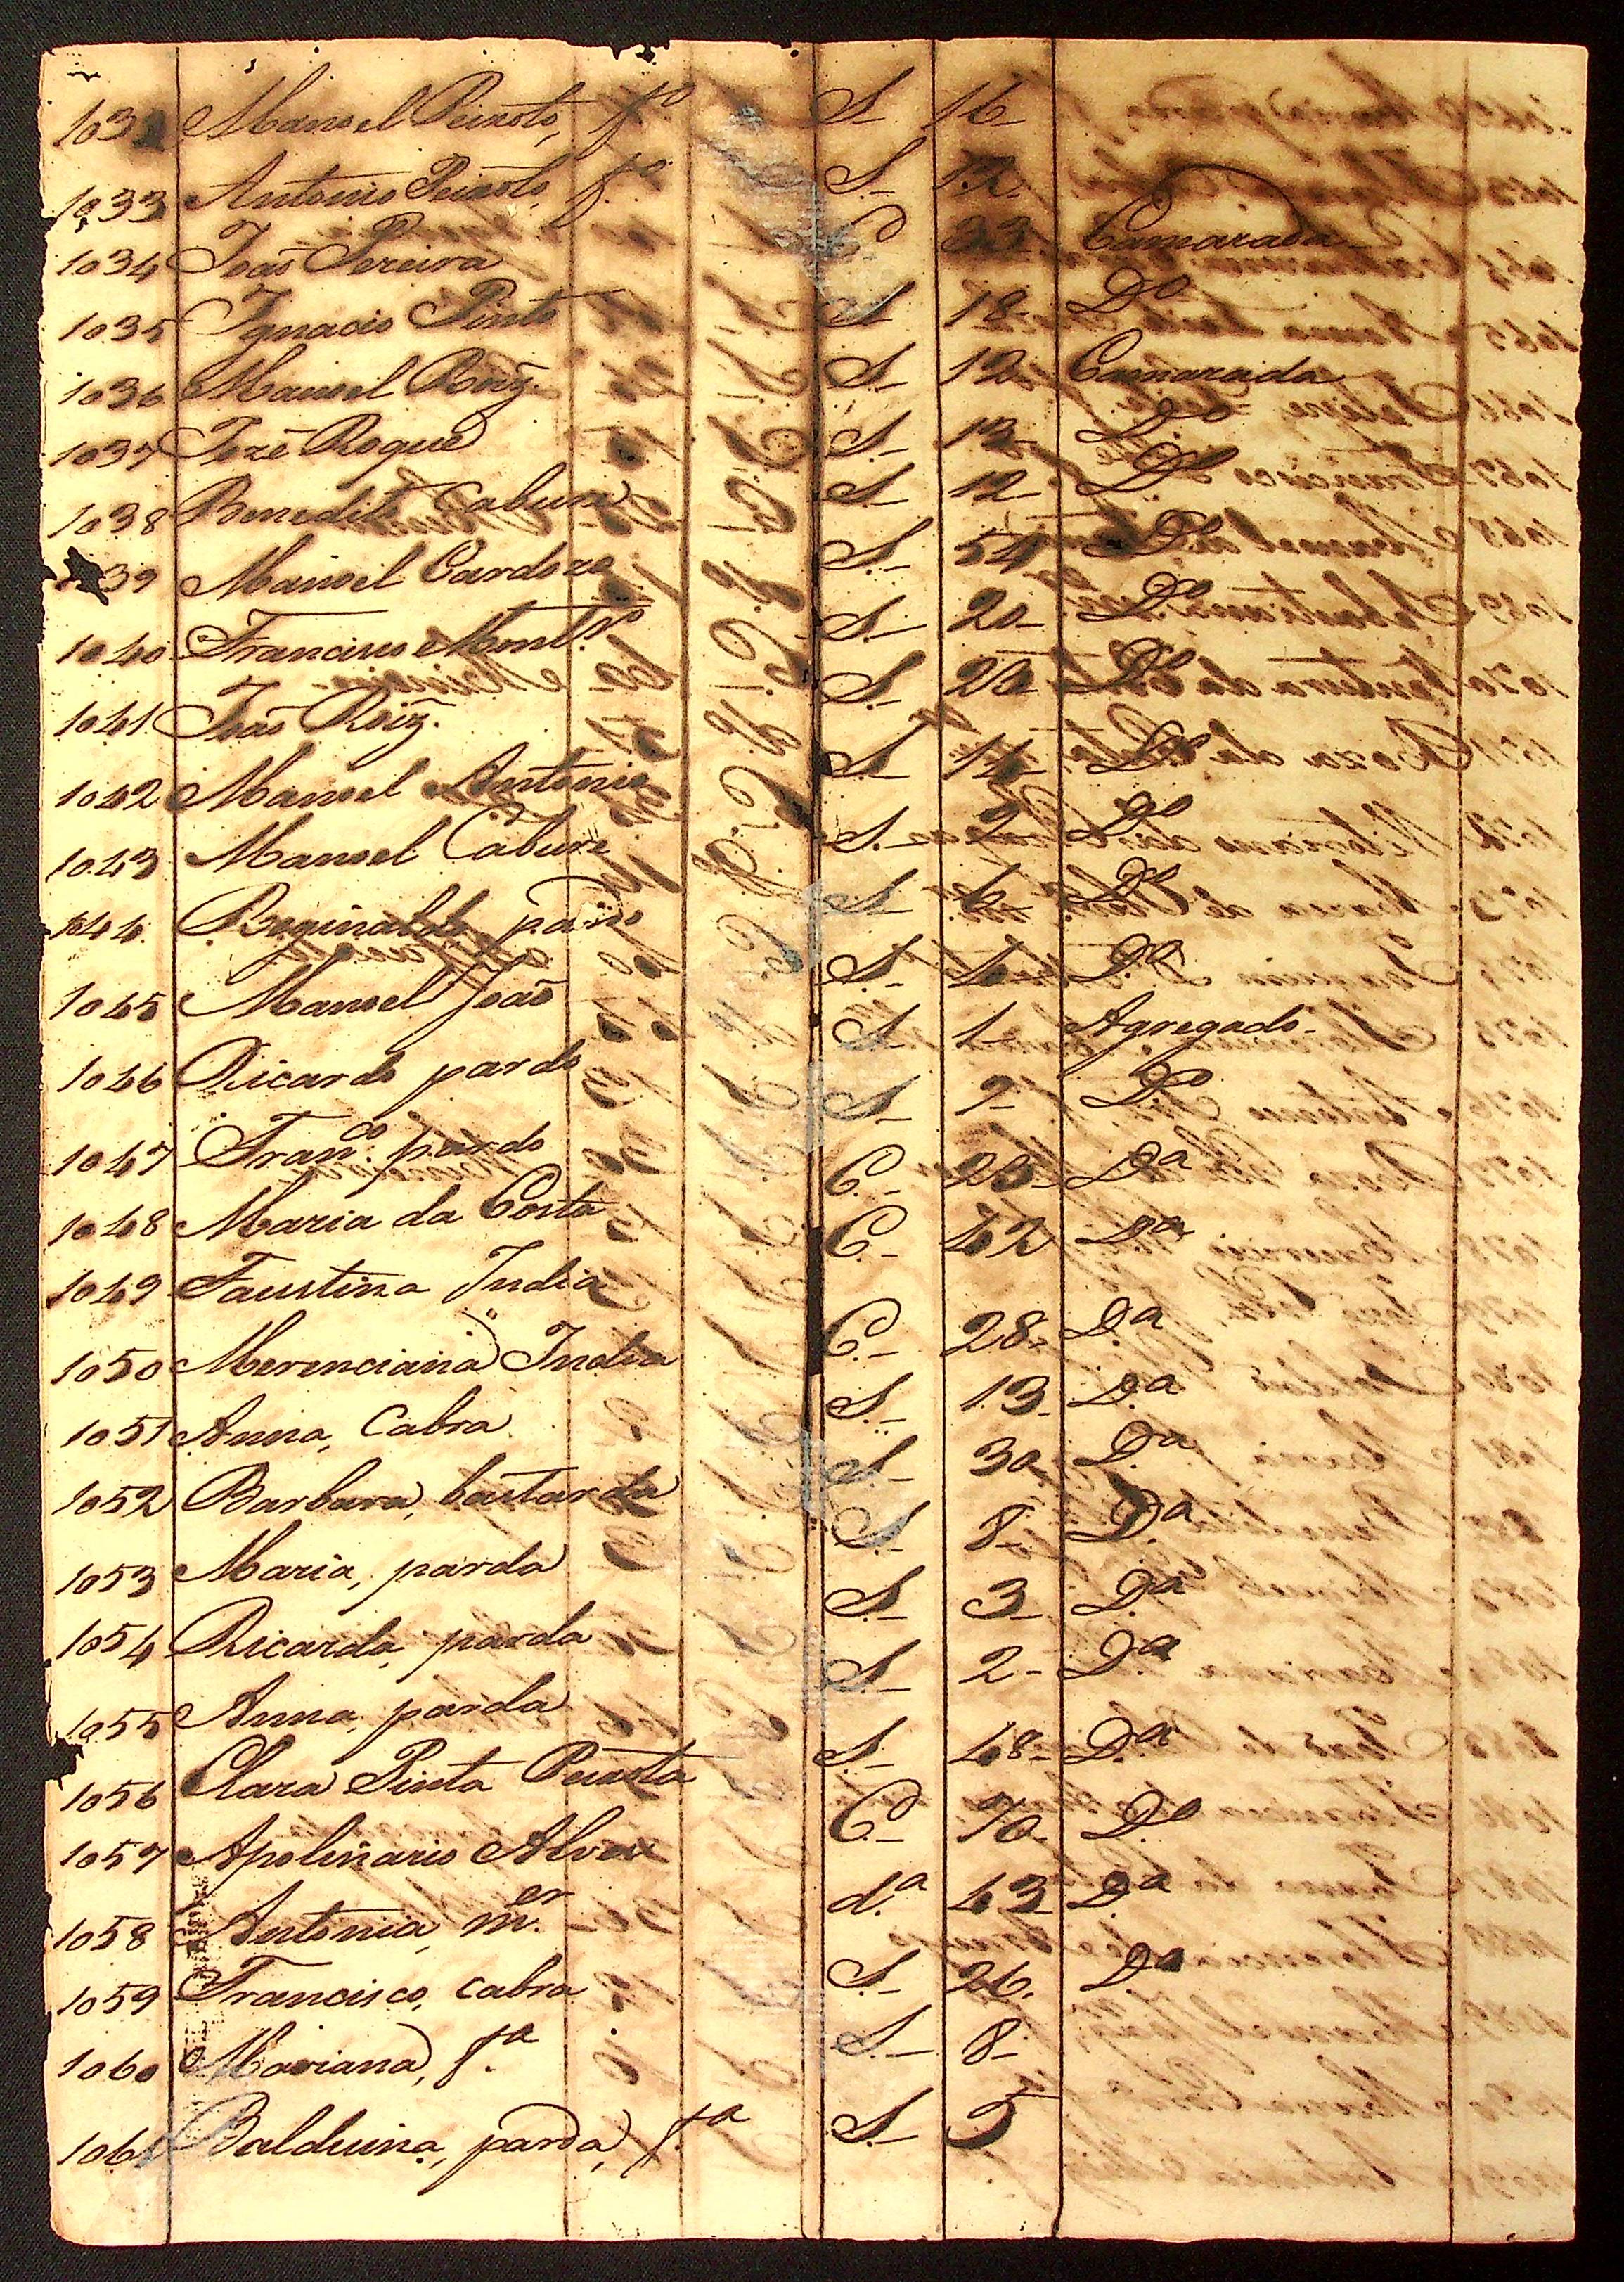 1032 Manoel Peixoto, fo S.- 16-
1033 Antonio Peixoto, fo S.- 12-
1034 João Pereira C 33 Camarada
1035 Ignacio Pinto S 18- Do
1036 Manoel Roiz. S.- 12 Camarada
1037 Jozé Roque S.- 12- Do
1038 Benedito Caburé S 12- Do
1039 Manoel Cardozo S.- 54 Do
1040 Francisco Montro S.- 20- Do
1041 João Roiz. S.- Do
1042 Manoel Antonio S.- Do
1043 Manoel Caburé S.- 2 Do
1044 Reginaldo, pardo S.- 6- Do
1045 Manoel João S.- Do
1046 Ricardo pardo S 1- Agregado-
1047 Franco. pardo S- 7- Do
1048 Maria da Costa C.- 25- Da
1049 Faustina India C.- 42 Da
1050 Merenciana India C.- 28- Da
1051 Anna, Cabra S.- 13- Da
1052 Barbara, bastarda S- 30 Da
1053 Maria, parda S.- 8- Da
1054 Ricarda, parda S.- 3- Da
1055 Anna, parda S- 2- Da
1056 Clara Pinta Peixota S.- 48- Da
1057 Apolinario Alvez C.- 70- Do
1058 Antonia, mer d.a 43 Da
1059 Francisco, cabra S.- 26. Do
1060 Mariana, fa S.- 8-
1061 Balduina, parda, fa S.- 5